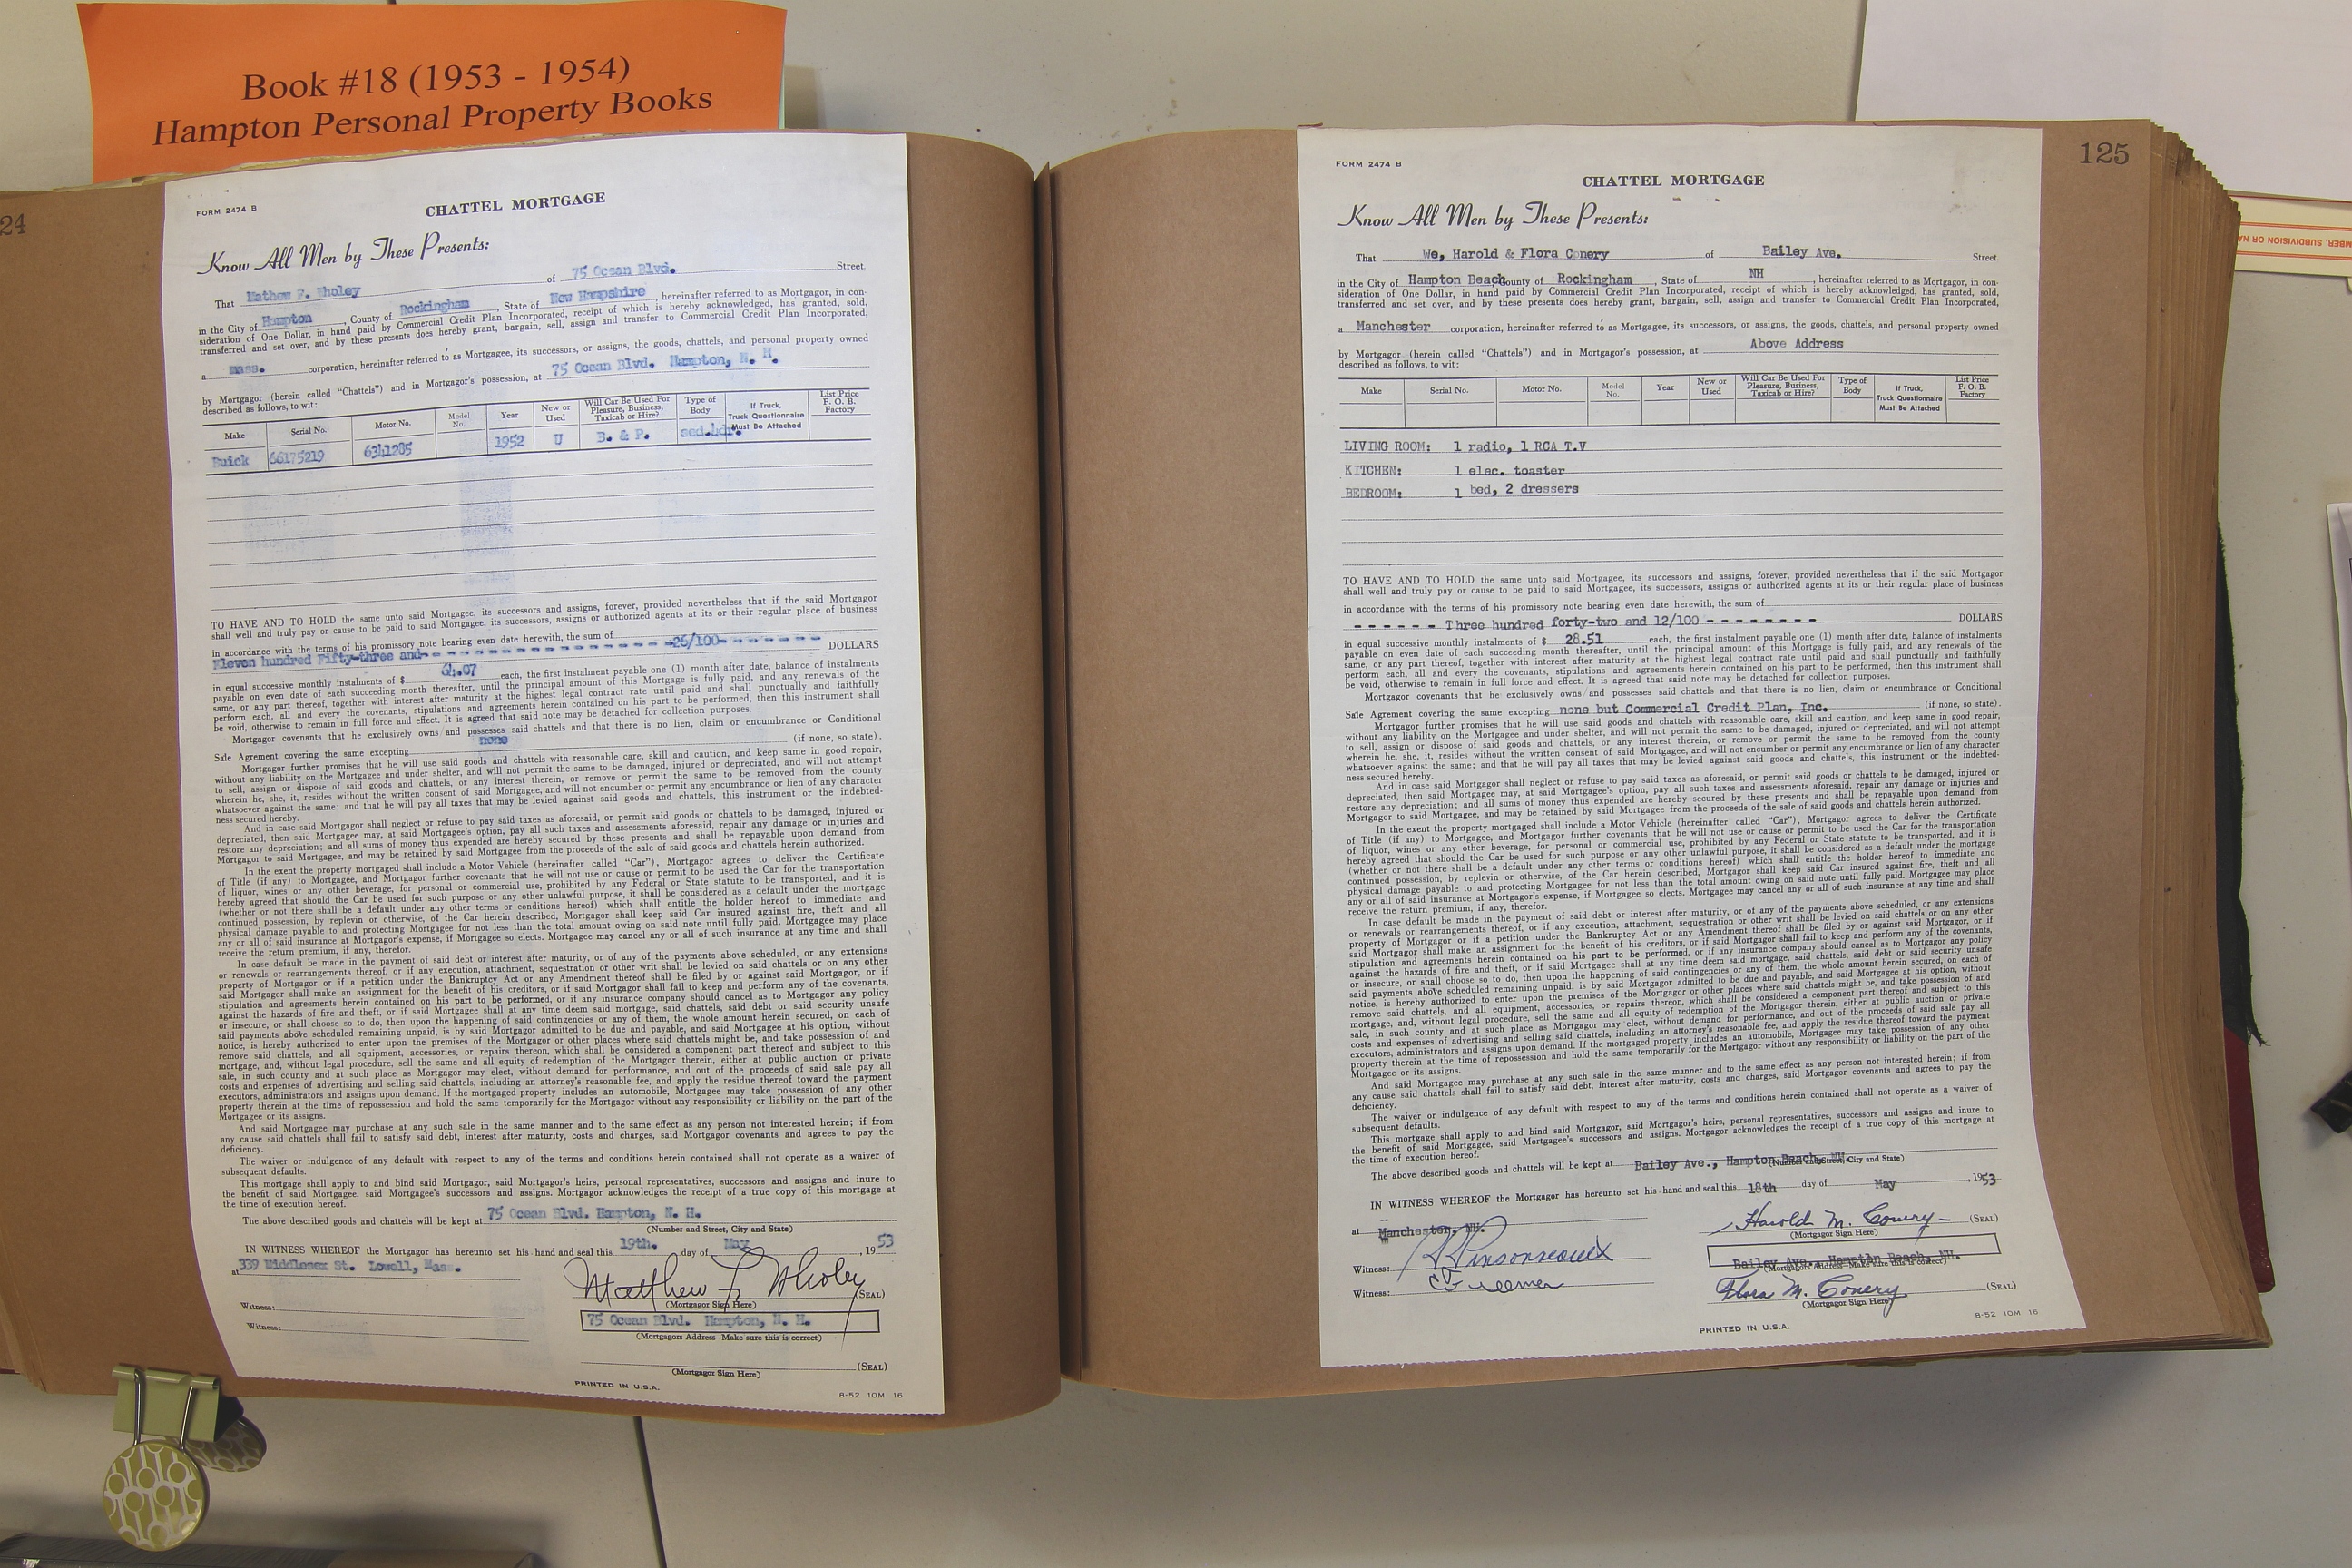 Book #18 (1953 - 1954)
Hampton Personal Property Books
24
FORM 2474 B
CHATTEL MORTGAGE
Know All Men by These Presents:
That Mathew F. Wholey of 75 Ocean Blvd. Street.
in the City of Hampton, County of Rockingham, State of New Hampshire, hereinafter referred to as Mortgagor, in con-
sideration of One Dollar, in hand paid by Commercial Credit Plan Incorporated, receipt of which is hereby acknowledged, has granted, sold,
transferred and set over, and by these presents does hereby grant, bargain, sell, assign and transfer to Commercial Credit Plan Incorporated,
a mass. corporation, hereinafter referred to as Mortgagee, its successors, or assigns, the goods, chattels, and personal property owned
by Mortgagor (herein called “Chattels”) and in Mortgagor's possession, at 75 Ocean Blvd. Hampton, N. H.
described as follows, to wit:
Make Serial No. Motor No. Model No. Year New or Used Will Car Be Used For Pleasure, Business, Taxicab or Hire? Type of Body If Truck, Truck Questionnaire Must Be Attached List Price F. O. B. Factory
Buick 66175219 6341285 1952 U B. & P. sed.hdr.
TO HAVE AND TO HOLD the same unto said Mortgagee, its successors and assigns, forever, provided nevertheless that if the said Mortgagor
shall well and truly pay or cause to be paid to said Mortgagee, its successors, assigns or authorized agents at its or their regular place of business
in accordance with the terms of his promissory note bearing even date herewith, the sum of
Eleven hundred Fifty-three and- - - - - - - - - - - - - - - - -26/100- - - - - - - DOLLARS
in equal successive monthly instalments of $ 64.07 each, the first instalment payable one (1) month after date, balance of instalments
payable on even date of each succeeding month thereafter, until the principal amount of this Mortgage is fully paid, and any renewals of the
same, or any part thereof, together with interest after maturity at the highest legal contract rate until paid and shall punctually and faithfully
perform each, all and every the covenants, stipulations and agreements herein contained on his part to be performed, then this instrument shall
be void, otherwise to remain in full force and effect. It is agreed that said note may be detached for collection purposes.
Mortgagor covenants that he exclusively owns and possesses said chattels and that there is no lien, claim or encumbrance or Conditional
Sale Agreement covering the same excepting none (if none, so state).
Mortgagor further promises that he will use said goods and chattels with reasonable care, skill and caution, and keep same in good repair,
without any liability on the Mortgagee and under shelter, and will not permit the same to be damaged, injured or depreciated, and will not attempt
to sell, assign or dispose of said goods and chattels, or any interest therein, or remove or permit the same to be removed from the county
wherein he, she, it, resides without the written consent of said Mortgagee, and will not encumber or permit any encumbrance or lien of any character
whatsoever against the same; and that he will pay all taxes that may be levied against said goods and chattels, this instrument or the indebted-
ness secured hereby.
And in case said Mortgagor shall neglect or refuse to pay said taxes as aforesaid, or permit said goods or chattels to be damaged, injured or
depreciated, then said Mortgagee may, at said Mortgagee's option, pay all such taxes and assessments aforesaid, repair any damage or injuries and
restore any depreciation; and all sums of money thus expended are hereby secured by these presents and shall be repayable upon demand from
Mortgagor to said Mortgagee, and may be retained by said Mortgagee from the proceeds of the sale of said goods and chattels herein authorized.
In the exent the property mortgaged shall include a Motor Vehicle (hereinafter called “Car”), Mortgagor agrees to deliver the Certificate
of Title (if any) to Mortgagee, and Mortgagor further covenants that he will not use or cause or permit to be used the Car for the transportation
of liquor, wines or any other beverage, for personal or commercial use, prohibited by any Federal or State statute to be transported, and it is
hereby agreed that should the Car be used for such purpose or any other unlawful purpose, it shall be considered as a default under the mortgage
(whether or not there shall be a default under any other terms or conditions hereof) which shall entitle the holder hereof to immediate and
continued possession, by replevin or otherwise, of the Car herein described, Mortgagor shall keep said Car insured against fire, theft and all
physical damage payable to and protecting Mortgagee for not less than the total amount owing on said note until fully paid. Mortgagee may place
any or all of said insurance at Mortgagor's expense, if Mortgagee so elects. Mortgagee may cancel any or all of such insurance at any time and shall
receive the return premium, if any, therefor.
In case default be made in the payment of said debt or interest after maturity, or of any of the payments above scheduled, or any extensions
or renewals or rearrangements thereof, or if any execution, attachment, sequestration or other writ shall be levied on said chattels or on any other
property of Mortgagor or if a petition under the Bankruptcy Act or any Amendment thereof shall be filed by or against said Mortgagor, or if
said Mortgagor shall make an assignment for the benefit of his creditors, or if said Mortgagor shall fail to keep and perform any of the covenants,
stipulation and agreements herein contained on his part to be performed, or if any insurance company should cancel as to Mortgagor any policy
against the hazards of fire and theft, or if said Mortgagee shall at any time deem said mortgage, said chattels, said debt or said security unsafe
or insecure, or shall choose so to do, then upon the happening of said contingencies or any of them, the whole amount herein secured, on each of
said payments above scheduled remaining unpaid, is by said Mortgagor admitted to be due and payable, and said Mortgagee at his option, without
notice, is hereby authorized to enter upon the premises of the Mortgagor or other places where said chattels might be, and take possession of and
remove said chattels, and all equipment, accessories, or repairs thereon, which shall be considered a component part thereof and subject to this
mortgage, and, without legal procedure, sell the same and all equity of redemption of the Mortgagor therein, either at public auction or private
sale, in such county and at such place as Mortgagor may elect, without demand for performance, and out of the proceeds of said sale pay all
costs and expenses of advertising and selling said chattels, including an attorney's reasonable fee, and apply the residue thereof toward the payment
executors, administrators and assigns upon demand. If the mortgaged property includes an automobile, Mortgagee may take possession of any other
property therein at the time of repossession and hold the same temporarily for the Mortgagor without any responsibility or liability on the part of the
Mortgagee or its assigns.
And said Mortgagee may purchase at any such sale in the same manner and to the same effect as any person not interested herein; if from
any cause said chattels shall fail to satisfy said debt, interest after maturity, costs and charges, said Mortgagor covenants and agrees to pay the
deficiency.
The waiver or indulgence of any default with respect to any of the terms and conditions herein contained shall not operate as a waiver of
subsequent defaults.
This mortgage shall apply to and bind said Mortgagor, said Mortgagor's heirs, personal representatives, successors and assigns and inure to
the benefit of said Mortgagee, said Mortgagee's successors and assigns. Mortgagor acknowledges the receipt of a true copy of this mortgage at
the time of execution hereof.
The above described goods and chattels will be kept at 75 Ocean Blvd. Hampton, N. H.
(Number and Street, City and State)
IN WITNESS WHEREOF the Mortgagor has hereunto set his hand and seal this 19th. day of May, 19 53
at 339 Middlesex St. Lowell, Mass.
Matthew F Wholey (SEAL)
(Mortgagor Sign Here)
Witness:
75 Ocean Blvd. Hampton, N. H.
Witness:
(Mortgagors Address—Make sure this is correct)
(SEAL)
(Mortgagor Sign Here)
PRINTED IN U.S.A.
8-52 10M 16
125
FORM 2474 B
CHATTEL MORTGAGE
Know All Men by These Presents:
That We, Harold & Flora Conery of Bailey Ave. Street.
in the City of Hampton Beach County of Rockingham, State of NH, hereinafter referred to as Mortgagor, in con-
sideration of One Dollar, in hand paid by Commercial Credit Plan Incorporated, receipt of which is hereby acknowledged, has granted, sold,
transferred and set over, and by these presents does hereby grant, bargain, sell, assign and transfer to Commercial Credit Plan Incorporated,
a Manchester corporation, hereinafter referred to as Mortgagee, its successors, or assigns, the goods, chattels, and personal property owned
by Mortgagor (herein called “Chattels”) and in Mortgagor's possession, at Above Address
described as follows, to wit:
Make Serial No. Motor No. Model No. Year New or Used Will Car Be Used For Pleasure, Business, Taxicab or Hire? Type of Body If Truck, Truck Questionnaire Must Be Attached List Price F. O. B. Factory
LIVING ROOM: 1 radio, 1 RCA T.V
KITCHEN: 1 elec. toaster
BEDROOM: 1 bed, 2 dressers
TO HAVE AND TO HOLD the same unto said Mortgagee, its successors and assigns, forever, provided nevertheless that if the said Mortgagor
shall well and truly pay or cause to be paid to said Mortgagee, its successors, assigns or authorized agents at its or their regular place of business
in accordance with the terms of his promissory note bearing even date herewith, the sum of
- - - - - - Three hundred forty-two and 12/100 - - - - - - - - DOLLARS
in equal successive monthly instalments of $ 28.51 each, the first instalment payable one (1) month after date, balance of instalments
payable on even date of each succeeding month thereafter, until the principal amount of this Mortgage is fully paid, and any renewals of the
same, or any part thereof, together with interest after maturity at the highest legal contract rate until paid and shall punctually and faithfully
perform each, all and every the covenants, stipulations and agreements herein contained on his part to be performed, then this instrument shall
be void, otherwise to remain in full force and effect. It is agreed that said note may be detached for collection purposes.
Mortgagor covenants that he exclusively owns and possesses said chattels and that there is no lien, claim or encumbrance or Conditional
Sale Agreement covering the same excepting none but Commercial Credit Plan, Inc. (if none, so state).
Mortgagor further promises that he will use said goods and chattels with reasonable care, skill and caution, and keep same in good repair,
without any liability on the Mortgagee and under shelter, and will not permit the same to be damaged, injured or depreciated, and will not attempt
to sell, assign or dispose of said goods and chattels, or any interest therein, or remove or permit the same to be removed from the county
wherein he, she, it, resides without the written consent of said Mortgagee, and will not encumber or permit any encumbrance or lien of any character
whatsoever against the same; and that he will pay all taxes that may be levied against said goods and chattels, this instrument or the indebted-
ness secured hereby.
And in case said Mortgagor shall neglect or refuse to pay said taxes as aforesaid, or permit said goods or chattels to be damaged, injured or
depreciated, then said Mortgagee may, at said Mortgagee's option, pay all such taxes and assessments aforesaid, repair any damage or injuries and
restore any depreciation; and all sums of money thus expended are hereby secured by these presents and shall be repayable upon demand from
Mortgagor to said Mortgagee, and may be retained by said Mortgagee from the proceeds of the sale of said goods and chattels herein authorized.
In the exent the property mortgaged shall include a Motor Vehicle (hereinafter called “Car”), Mortgagor agrees to deliver the Certificate
of Title (if any) to Mortgagee, and Mortgagor further covenants that he will not use or cause or permit to be used the Car for the transportation
of liquor, wines or any other beverage, for personal or commercial use, prohibited by any Federal or State statute to be transported, and it is
hereby agreed that should the Car be used for such purpose or any other unlawful purpose, it shall be considered as a default under the mortgage
(whether or not there shall be a default under any other terms or conditions hereof) which shall entitle the holder hereof to immediate and
continued possession, by replevin or otherwise, of the Car herein described, Mortgagor shall keep said Car insured against fire, theft and all
physical damage payable to and protecting Mortgagee for not less than the total amount owing on said note until fully paid. Mortgagee may place
any or all of said insurance at Mortgagor's expense, if Mortgagee so elects. Mortgagee may cancel any or all of such insurance at any time and shall
receive the return premium, if any, therefor.
In case default be made in the payment of said debt or interest after maturity, or of any of the payments above scheduled, or any extensions
or renewals or rearrangements thereof, or if any execution, attachment, sequestration or other writ shall be levied on said chattels or on any other
property of Mortgagor or if a petition under the Bankruptcy Act or any Amendment thereof shall be filed by or against said Mortgagor, or if
said Mortgagor shall make an assignment for the benefit of his creditors, or if said Mortgagor shall fail to keep and perform any of the covenants,
stipulation and agreements herein contained on his part to be performed, or if any insurance company should cancel as to Mortgagor any policy
against the hazards of fire and theft, or if said Mortgagee shall at any time deem said mortgage, said chattels, said debt or said security unsafe
or insecure, or shall choose so to do, then upon the happening of said contingencies or any of them, the whole amount herein secured, on each of
said payments above scheduled remaining unpaid, is by said Mortgagor admitted to be due and payable, and said Mortgagee at his option, without
notice, is hereby authorized to enter upon the premises of the Mortgagor or other places where said chattels might be, and take possession of and
remove said chattels, and all equipment, accessories, or repairs thereon, which shall be considered a component part thereof and subject to this
mortgage, and, without legal procedure, sell the same and all equity of redemption of the Mortgagor therein, either at public auction or private
sale, in such county and at such place as Mortgagor may elect, without demand for performance, and out of the proceeds of said sale pay all
costs and expenses of advertising and selling said chattels, including an attorney's reasonable fee, and apply the residue thereof toward the payment
executors, administrators and assigns upon demand. If the mortgaged property includes an automobile, Mortgagee may take possession of any other
property therein at the time of repossession and hold the same temporarily for the Mortgagor without any responsibility or liability on the part of the
Mortgagee or its assigns.
And said Mortgagee may purchase at any such sale in the same manner and to the same effect as any person not interested herein; if from
any cause said chattels shall fail to satisfy said debt, interest after maturity, costs and charges, said Mortgagor covenants and agrees to pay the
deficiency.
The waiver or indulgence of any default with respect to any of the terms and conditions herein contained shall not operate as a waiver of
subsequent defaults.
This mortgage shall apply to and bind said Mortgagor, said Mortgagor's heirs, personal representatives, successors and assigns and inure to
the benefit of said Mortgagee, said Mortgagee's successors and assigns. Mortgagor acknowledges the receipt of a true copy of this mortgage at
the time of execution hereof.
The above described goods and chattels will be kept at Bailey Ave., Hampton Beach, NH.
(Number and Street, City and State)
IN WITNESS WHEREOF the Mortgagor has hereunto set his hand and seal this 18th day of May, 1953
at Manchester, NH.
Harold M. Conery (SEAL)
(Mortgagor Sign Here)
Witness: Pinsonneault
Bailey Ave., Hampton Beach, NH.
(Mortgagors Address—Make sure this is correct)
Witness:
Flora M. Conery (SEAL)
(Mortgagor Sign Here)
PRINTED IN U.S.A.
8-52 10M 16
SUBDIVISION OR